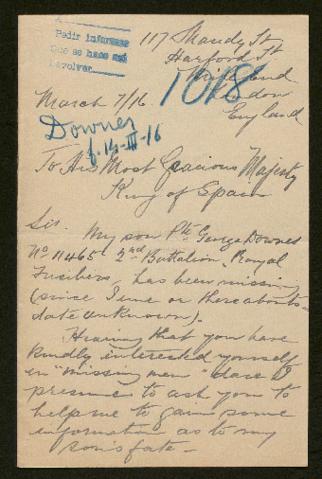 Pedir informes
Que se hace así
Devolver
117 Maudy St
Harford St
Mile End
London
England
1018
March 7/16
Downes
f. 14-III-16
To His Most Gracious Majesty
King of Spain
Sir.
My son Pte George Downes
No 11465 2nd Battalion, Royal
Fusiliers, has been missing
(since June or thereabouts -
date unknown).
Hearing that you have
kindly interested yourself
in "missing men" dare I
presume to ask you to
help me to gain some
information as to my
son's fate -